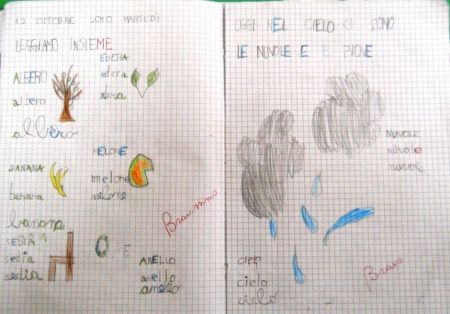 12 OTTOBRE 2010 MARTEDÌ
LEGGIAMO INSIEME
ALBERO
albero
albero
EDERA
edera
BANANA
banana
banana
MELONE
melone
melone
Bravissimo
SEDIA
sedia
sedia
ANELLO
anello
anello
OGGI NEL CIELO CI SONO
LE NUVOLE E PIOVE
NUVOLE
nuvole
nuvole
cielo
cielo
Bravo